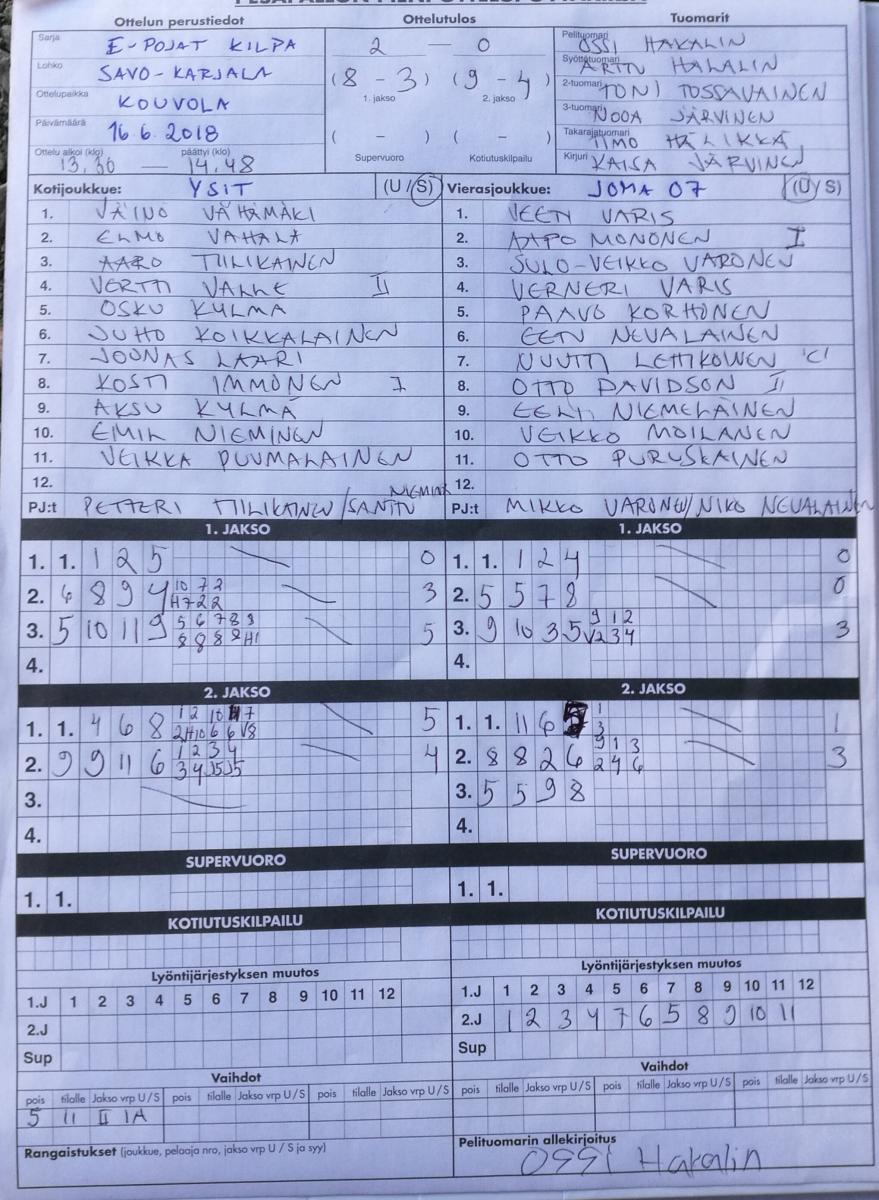 Ottelun perustiedot
Ottelutulos
Tuomarit
Sarja E-POJAT KILPA
Lohko SAVO-KARJALA
Ottelupaikka KOUVOLA
Päivämäärä 16.6.2018
Ottelu alkoi (klo) päättyi (klo)
13.30 — 14.48
2 — 0
(8 - 3) (9 - 4)
1. jakso 2. jakso
( - ) ( - )
Supervuoro Kotiutuskilpailu
Pelituomari OSSI HAKALIN
Syöttötuomari ARTTU HAKALIN
2-tuomari TONI TOSSAVAINEN
3-tuomari NOOA JÄRVINEN
Takarajatuomari TIMO HÄLIKKÄ
Kirjuri KAISA JÄRVINEN
Kotijoukkue: YSIT (U/S)
1. VÄINÖ VÄHÄMÄKI
2. ELMO VAHALA
3. AARO TIILIKAINEN
4. VERTTI II
5. OSKU KYLMÄ
6. JUHO KOIKKALAINEN
7. JOONAS LAARI
8. KOSTI IMMONEN I
9. AKSU KYLMÄ
10. EMIL NIEMINEN
11. VEIKKA PUUMALAINEN
12.
PJ:t PETTERI TIILIKAINEN/SANTTU
Vierasjoukkue: JOMA 07 (U/S)
1. VEETI VARIS
2. AAPO MONONEN I
3. SULO-VEIKKO VARONEN
4. VERNERI VARIS
5. PAAVO KORHONEN
6. EETU NEVALAINEN
7. NUUTTI LEHIKOINEN 'C'
8. OTTO DAVIDSON II
9. EELI NIEMELÄINEN
10. VEIKKO MOILANEN
11. OTTO PURUSKAINEN
12.
PJ:t MIKKO VARONEN/NIKO NEVALAINEN
1. JAKSO
1. 1. 1 2 5 0
2. 6 8 9 4 10 7 2 3
H 7 2 2
3. 5 10 11 9 5 6 7 8 9 5
8 8 8 8 H1
4.
1. JAKSO
1. 1. 1 2 4 0
2. 5 5 7 8 0
3. 9 10 3 5 9 1 2 3
V2 3 4
4.
2. JAKSO
1. 1. 4 6 8 1 2 10 7 5
2 H10 6 6 V8
2. 9 9 11 6 1 2 3 4 4
3 4 J5 J5
3.
4.
2. JAKSO
1. 1. 11 6 1 1
3
2. 8 8 2 6 9 1 3 3
2 4 6
3. 5 5 9 8
4.
SUPERVUORO
1. 1.
SUPERVUORO
1. 1.
KOTIUTUSKILPAILU
KOTIUTUSKILPAILU
Lyöntijärjestyksen muutos
1.J 1 2 3 4 5 6 7 8 9 10 11 12
2.J
Sup
Lyöntijärjestyksen muutos
1.J 1 2 3 4 5 6 7 8 9 10 11 12
2.J 1 2 3 4 7 6 5 8 9 10 11
Sup
Vaihdot
pois tilalle Jakso vrp U/S pois tilalle Jakso vrp U/S pois tilalle Jakso vrp U/S
5 11 II 1A
Vaihdot
pois tilalle Jakso vrp U/S pois tilalle Jakso vrp U/S pois tilalle Jakso vrp U/S
Rangaistukset (joukkue, pelaaja nro, jakso vrp U / S ja syy)
Pelituomarin allekirjoitus
Ossi Hakalin